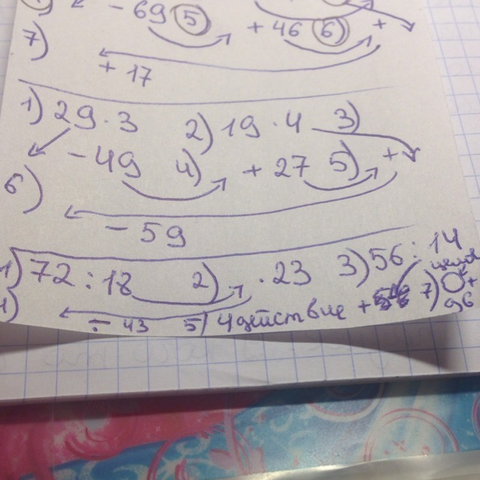 - 69 5 + 46 6 +
7)
+ 17
1) 29 · 3 2) 19 · 4 3)
- 49 4) + 27 5) +
6)
- 59
1) 72 : 18 2) · 23 3) 56 : 14
- 43 5) 4 действие + 7) +
96